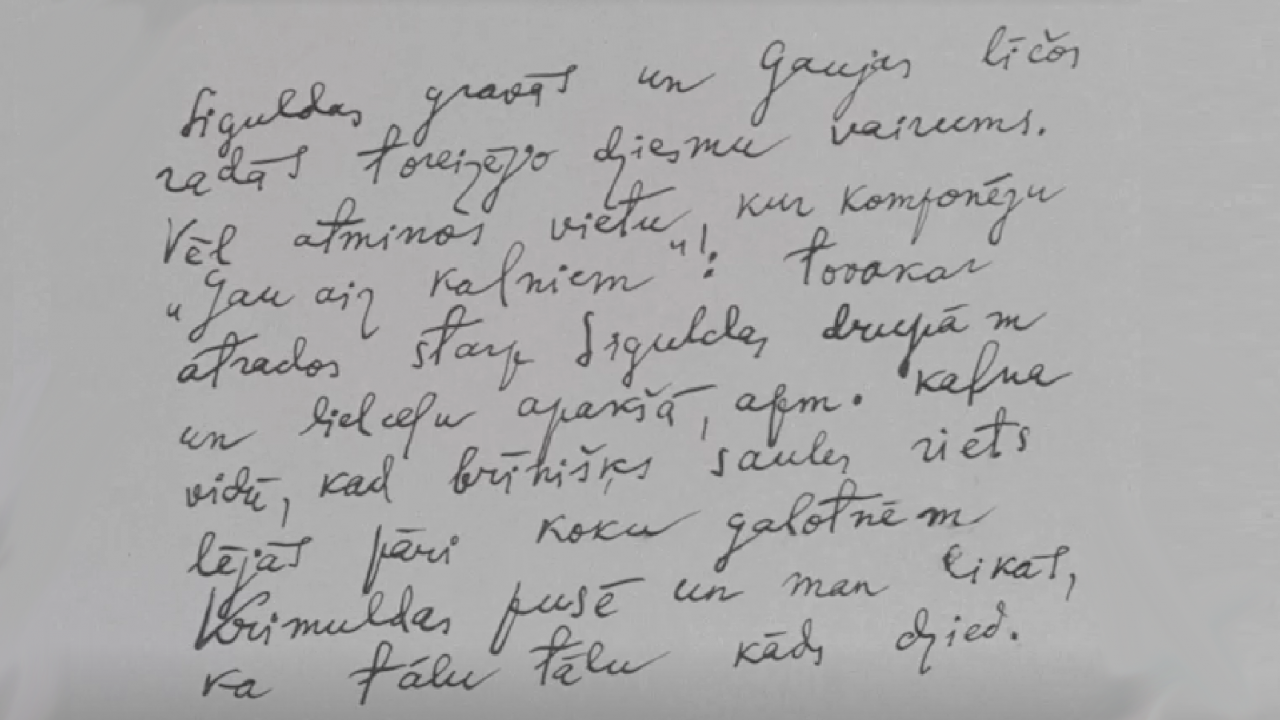 Siguldas gravās un Gaujas līčos
radās toreizējo dziesmu vairums.
Vēl atminos vietu, kur komponēju
„Jau aiz kalniem"!: tovakar
atrados starp Siguldas drupām
un lielceļu apakšā, apm. kalna
vidū, kad brīnišķs saules riets
lējās pāri koku galotnēm
Krimuldas pusē un man likās,
ka tālu tālu kāds dzied.